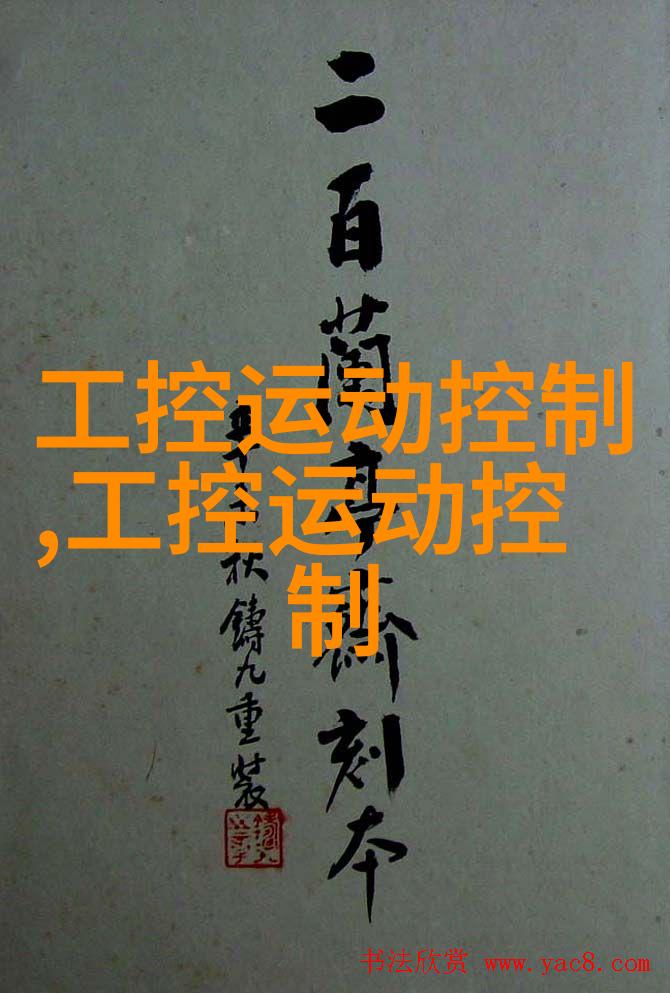 二百蘭亭齋刻本
秋鑄九重裝
工控运动控制
,工控运动控
制
书法欣赏 www.yac8.com